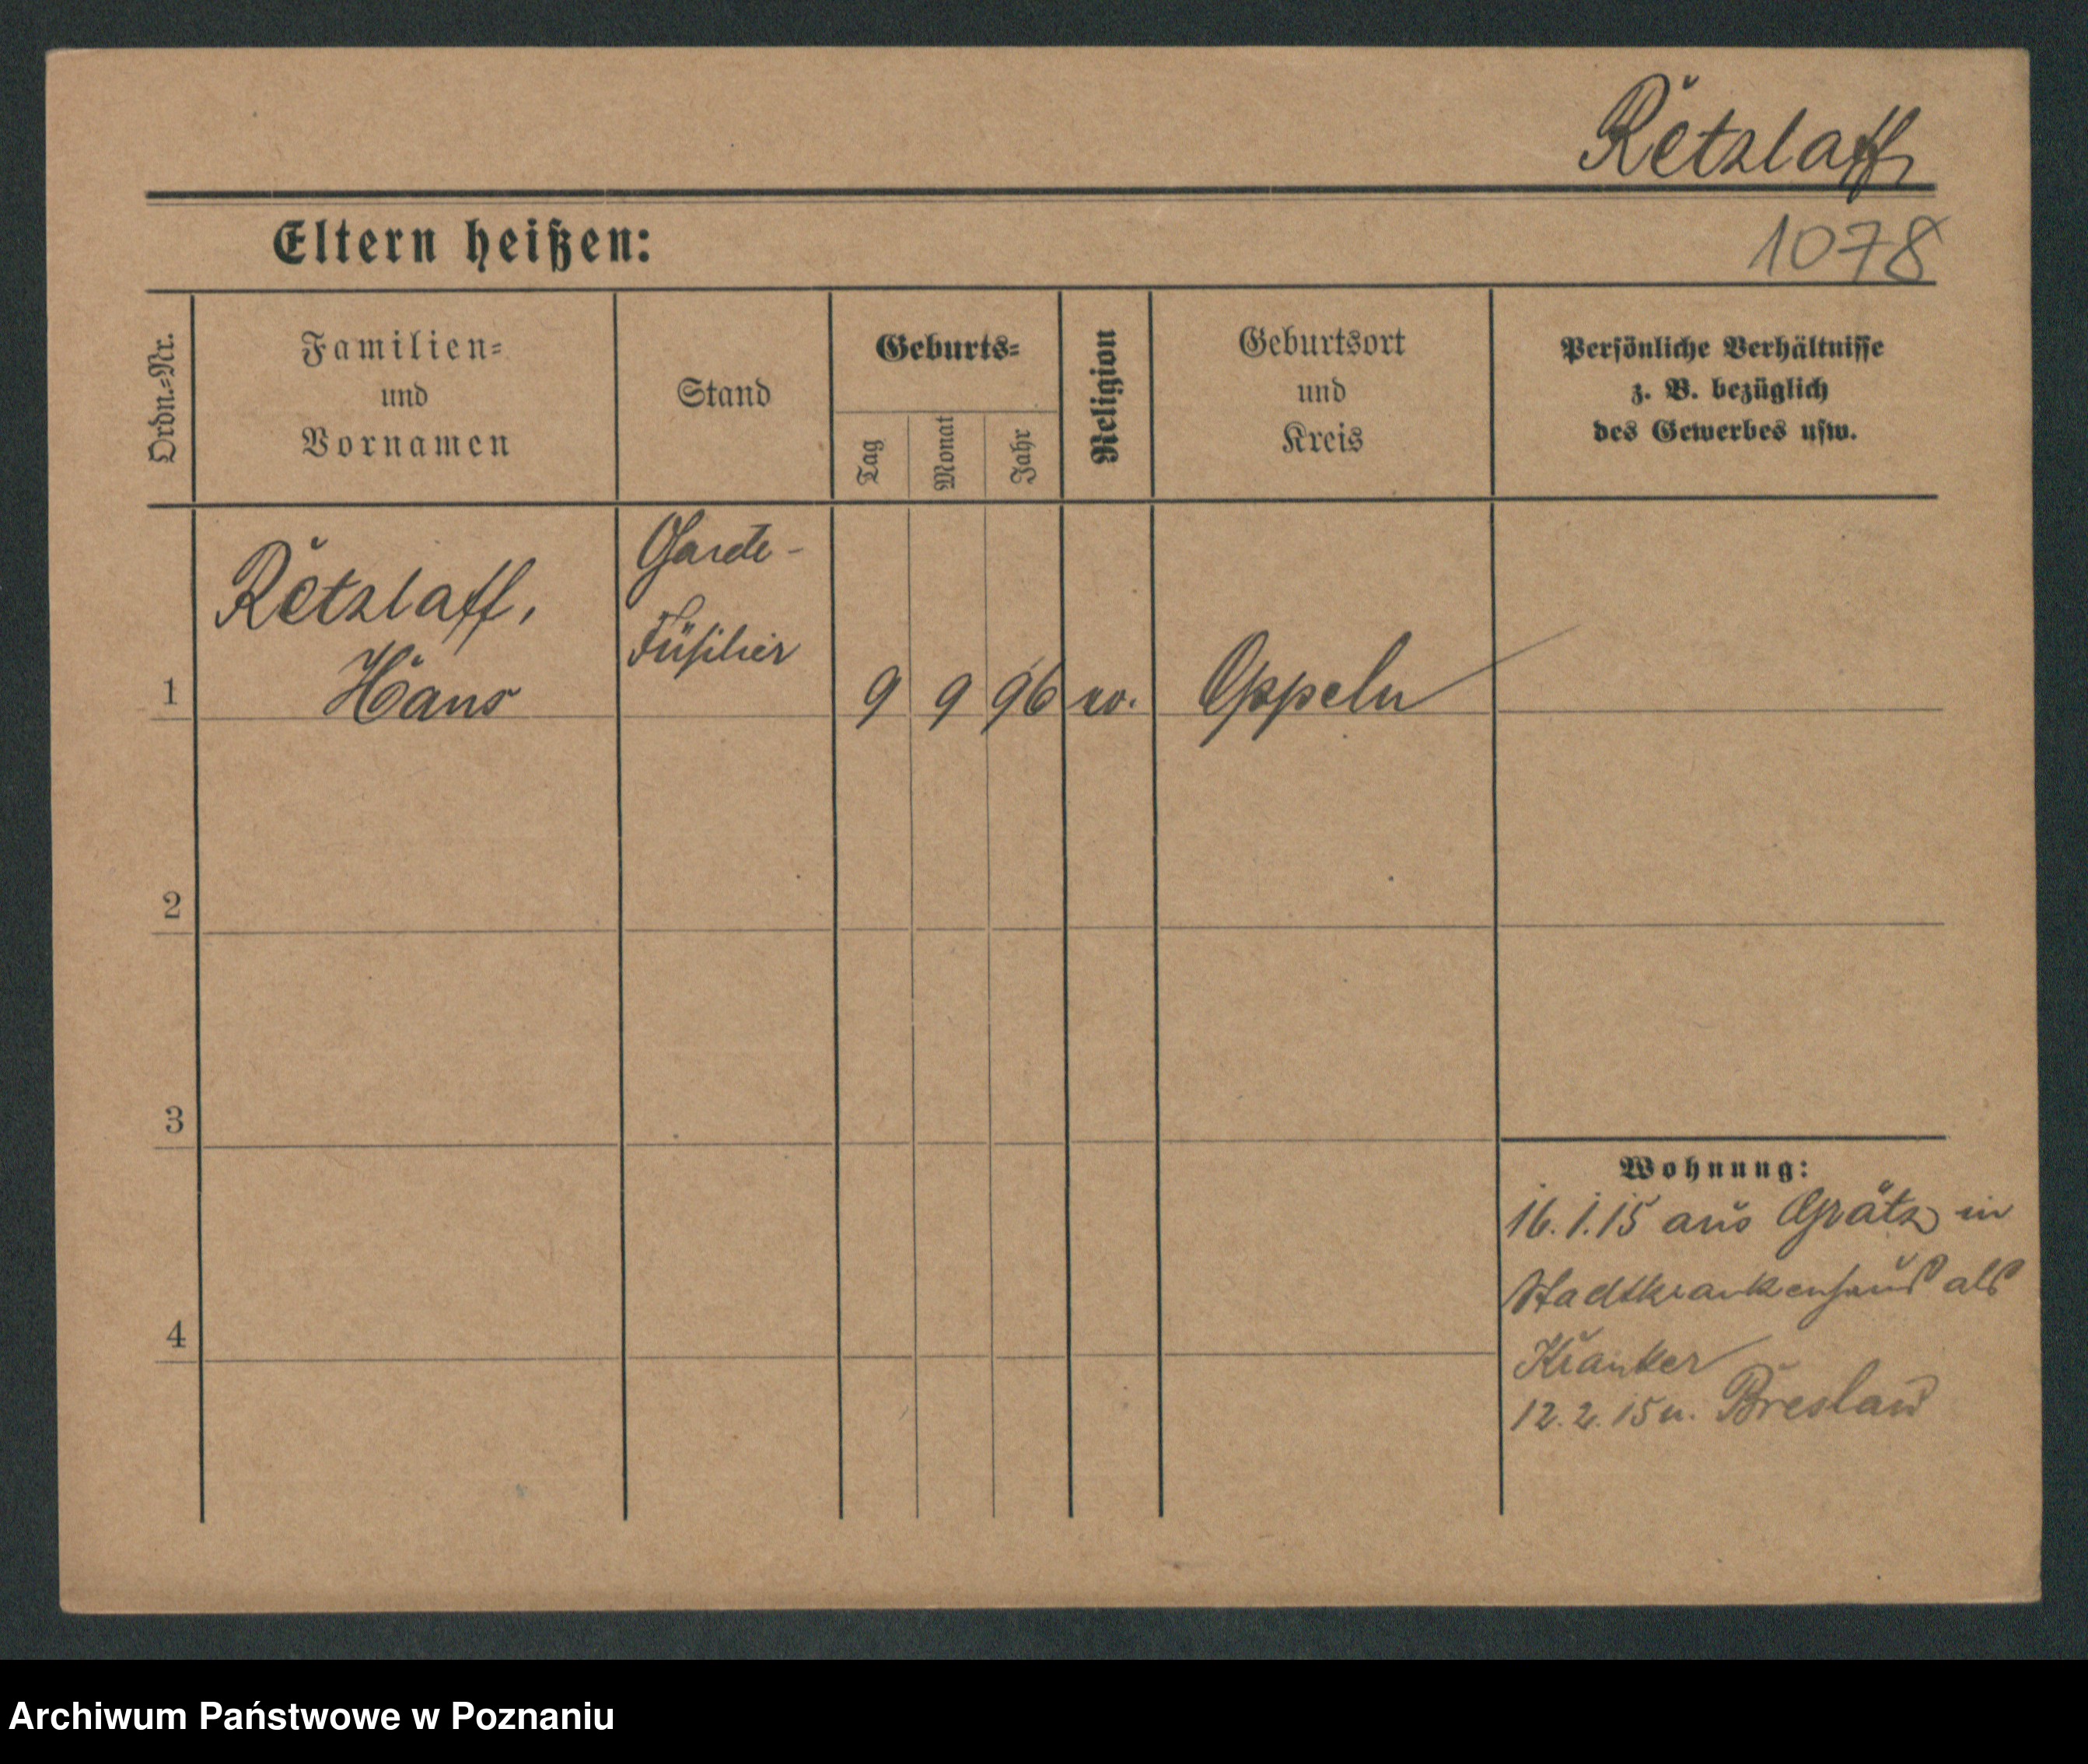 Retzlaff
Eltern heißen:
1078
Ordn.-Nr.
Familien-
und
Vornamen
Stand
Geburts-
Tag
Monat
Jahr
Religion
Geburtsort
und
Kreis
Persönliche Verhältnisse
z. B. bezüglich
des Gewerbes usw.
1
Retzlaff,
Hans
Garde-
Füsilier
9
9
96
Oppeln
2
3
4
Wohnung:
16.1.15 aus Grätz in
Stadtkrankenhaus als
Kranker
12.2.15 n. Breslau
Archiwum Państwowe w Poznaniu